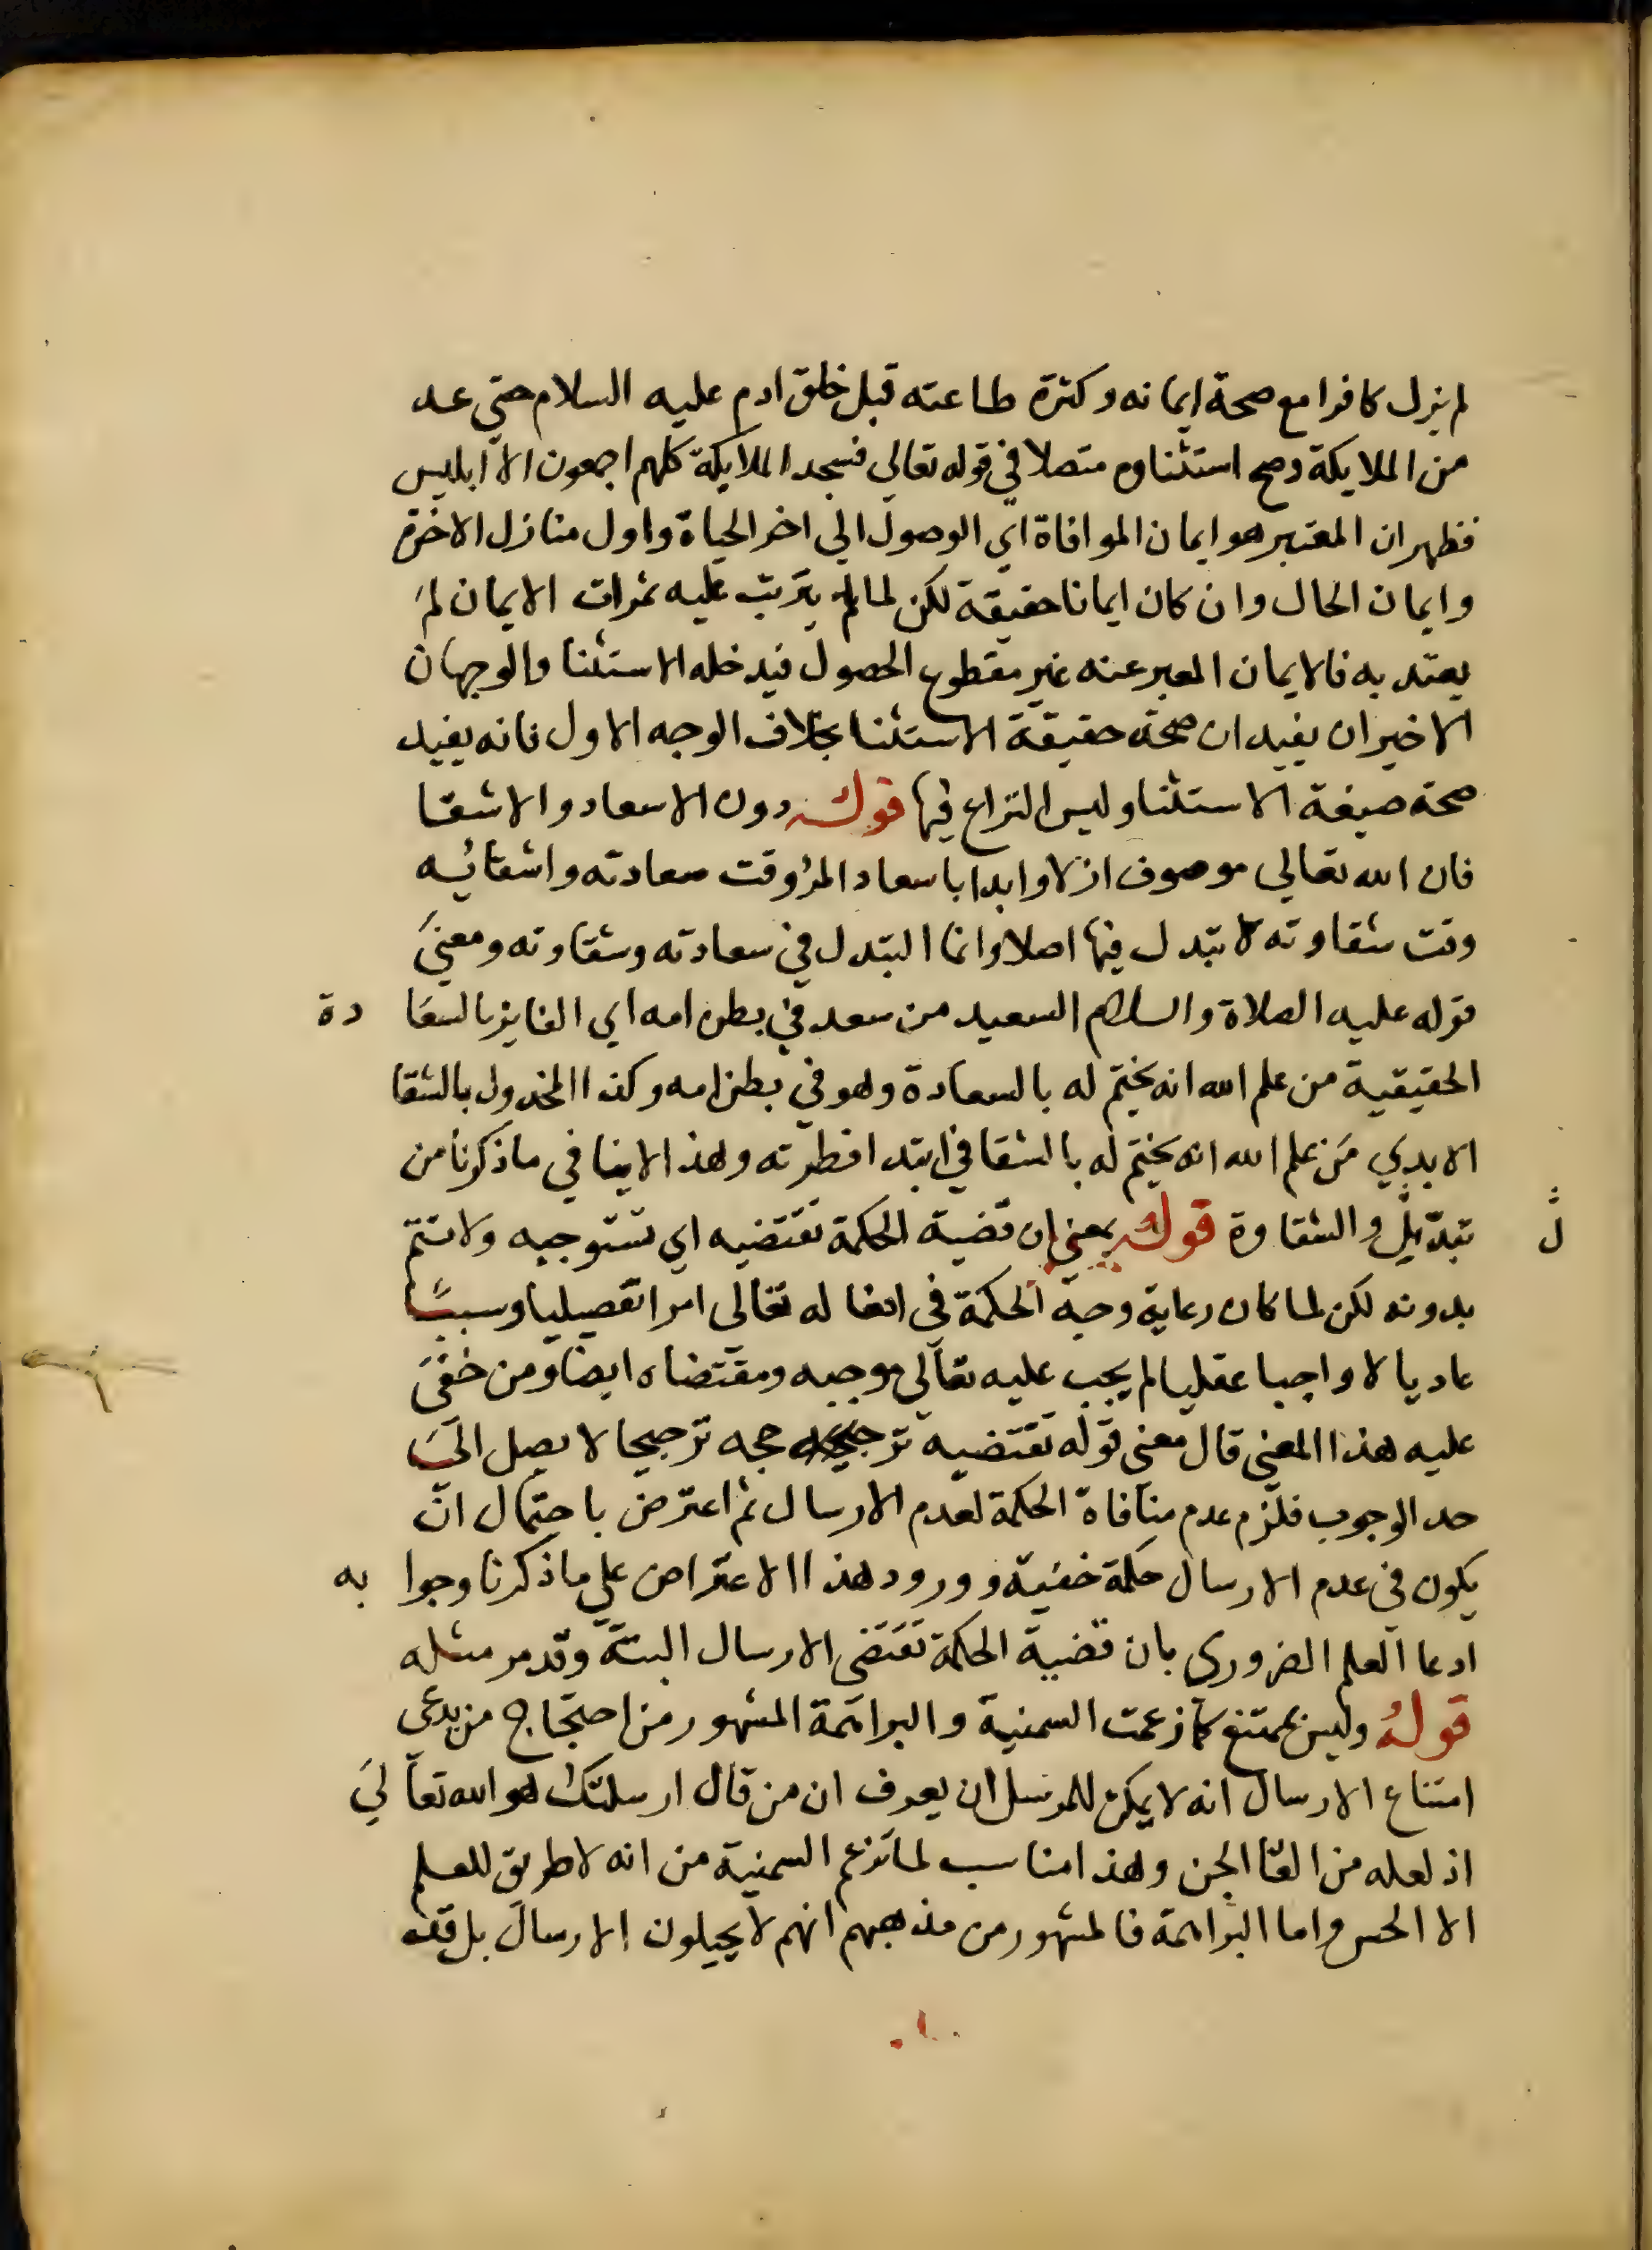 لم يزل كافرا مع صحة ايمانه وكثرة طاعته قبل خلق ادم عليه السلام حتي عد
من الملايكة وصح استثناوه متصلا في قوله تعالي فسجد الملايكة كلهم اجمعون الا ابليس
فظهر ان المعتبر هو ايمان الموافاة اي الوصول الي اخر الحياة واول منازل الاخرة
وايمان الحال وان كان ايمانا حقيقة لكن لما لم يترتب عليه ثمرات الايمان لم
يعتد به فالايمان المعبر عنه غير مقطوع الحصول فيدخله الاستثنا والوجهان
الاخيران يفيدان صحة حقيقة الاستثنا بخلاف الوجه الاول فانه يفيد
صحة صيغة الاستثنا وليس النزاع فيها قوله دون الاسعاد والاشقا
فان الله تعالي موصوف ازلا وابدا باسعاد المرٔ وقت سعادته واشقائه
وقت شقاوته لا تبدل فيها اصلا وانما التبدل في سعادته وشقاوته ومعني
قوله عليه الصلاة والسلام السعيد من سعد في بطن امه اي الفايز بالسعا دة
الحقيقية من علم الله انه يختم له بالسعادة وهو في بطن امه وكذا المخذول بالشقا
الابدي من علم الله انه يختم له بالشقا في ابتدا فطرته وهذا لا ينافي ما ذكرنا من
تبديل والشقاوة قوله بمعني ان قضية الحكمة تقتضيه اي تستوجبه ولا تتم
ل
بدونه لكن لما كان رعاية وجه الحكمة في افعاله تعالى امرا تفصيليا وسببًا
عاديا لا واجبا عقليا لم يجب عليه تعالي موجبه ومقتضاه ايضا ومن خفي
عليه هذا المعني قال معنى قوله تقتضيه ترجحه ترجيحا لا يصل الي
حد الوجوب فلزم عدم منافاة الحكمة لعدم الارسال ثم اعترض باحتمال ان
يكون في عدم الارسال حكمة خفية وورود هذا الاعتراض علي ما ذكرنا وجوا به
ادعا العلم الضروري بان قضية الحكمة تقتضي الارسال البتة وقد مر مثله
قوله وليس بممتنع كما زعمت السمنية والبراهمة المشهور من احتجاج من يدعي
امتناع الارسال انه لا يمكن للمرسل ان يعرف ان من قال ارسلتك هو الله تعالي
اذ لعله من القا الجن وهذا مناسب لما تزعم السمنية من انه لا طريق للعلم
الا الحس واما البراهمة فالمشهور من مذهبهم انهم لا يحيلون الارسال بل قد